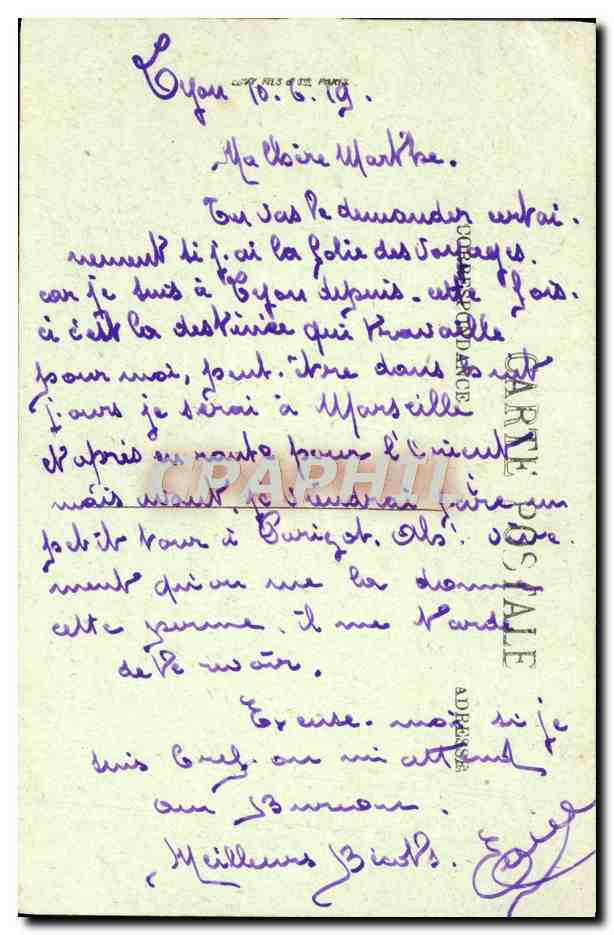 LEVY FILS & Cie PARIS
Lyon 10.6.19.
Ma Chère Marthe.
Tu vas te demander certai-
nement si j'ai la folie des voyages.
car je suis à Lyon depuis. cette fois-
ci c'est la destinée qui travaille
pour moi, peut-être dans huit
jours je serai à Marseille
et après en route pour l'Orient
mais avant, je viendrai faire un
petit tour à Parigot. Ah! vive-
ment qu'on me la donne
cette perme. il me tarde
de te revoir.
Excuse-moi si je
suis bref. on m'attend
au Bureau.
Meilleurs Bicots.
CORRESPONDANCE
CARTE POSTALE
ADRESSE
CPARHIL